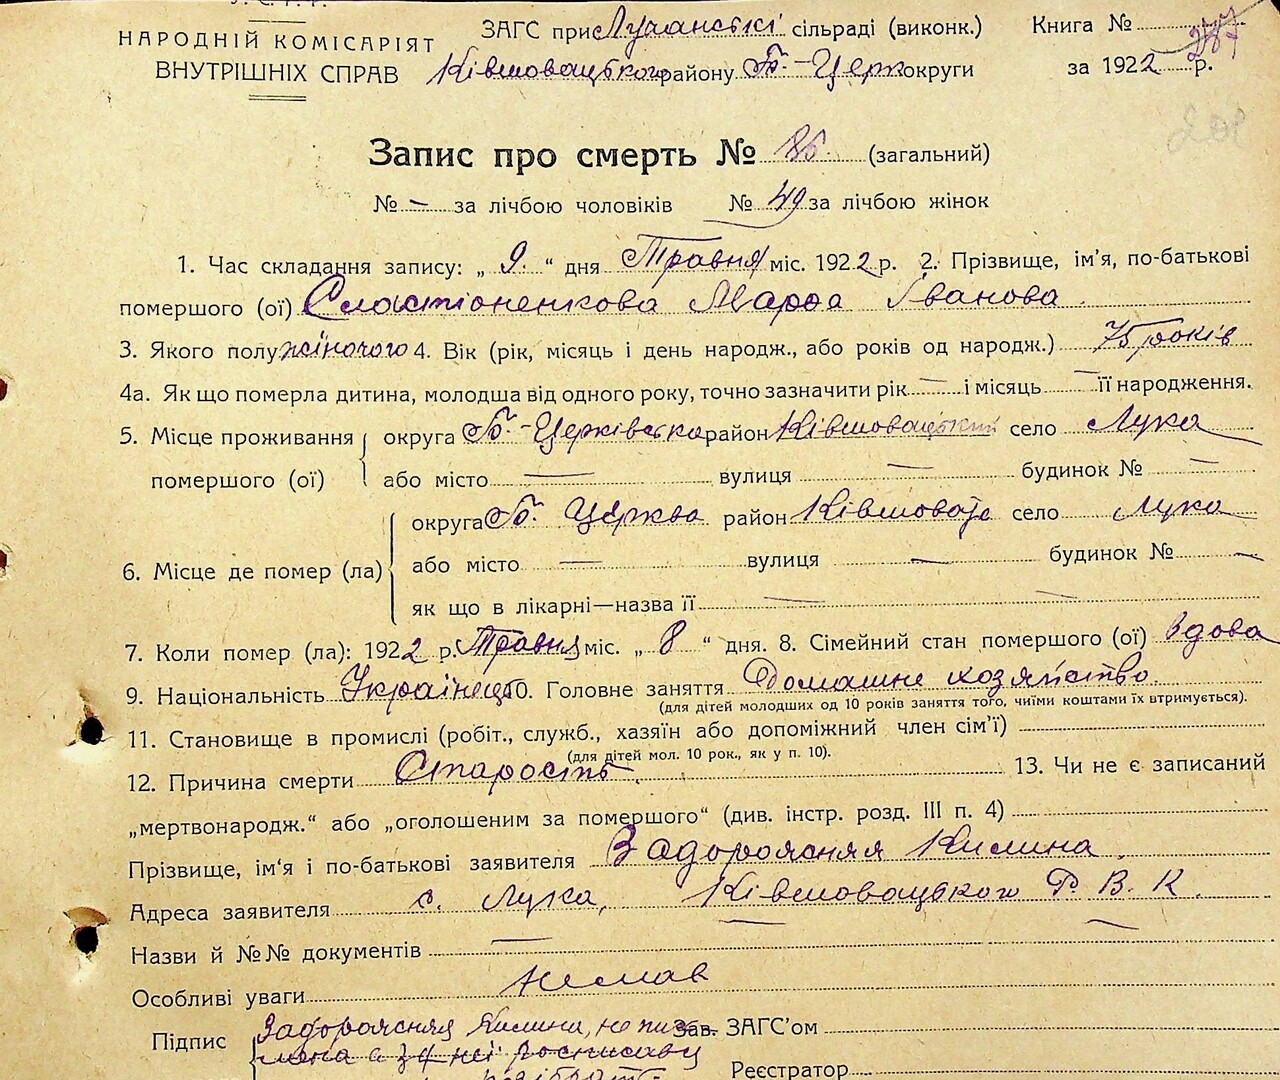 НАРОДНІЙ КОМІСАРІЯТ
ВНУТРІШНІХ СПРАВ
ЗАГС при Лучанські сільраді (виконк.)
Ківшовацького району Б.-Церк округи
Книга №
287
за 1922 р.
Запис про смерть № 86. (загальний)
№ – за лічбою чоловіків № 49 за лічбою жінок
1. Час складання запису: „ 9. “ дня Травня міс. 1922 р. 2. Прізвище, ім'я, по-батькові
помершого (ої) Сластіоненкова Марфа Іванова
3. Якого полу жіночого 4. Вік (рік, місяць і день народж., або років од народж.) 75 років
4а. Як що померла дитина, молодша від одного року, точно зазначити рік — і місяць — її народження.
5. Місце проживання помершого (ої) округа Б.-Церківська район Ківшовацький село Лука
або місто — вулиця — будинок № —
6. Місце де помер (ла) округа Б. Церква район Ківшоваць село Лука
або місто — вулиця — будинок № —
як що в лікарні—назва її — —
7. Коли помер (ла): 1922 р. Травня міс. „ 8 “ дня. 8. Сімейний стан помершого (ої) вдова
9. Національність Українець 10. Головне заняття Домашнє хозяйство
(для дітей молодших од 10 років заняття того, чиїми коштами їх втримується).
11. Становище в промислі (робіт., служб., хазяїн або допоміжний член сім'ї)
(для дітей мол. 10 рок., як у п. 10).
12. Причина смерти Старость. 13. Чи не є записаний
„мертвонародж.“ або „оголошеним за помершого“ (див. інстр. розд. III п. 4)
Прізвище, ім'я і по-батькові заявителя Задорожняя Килина
Адреса заявителя с. Лука, Ківшовацького Р. В. К.
Назви й №№ документів — — —
Особливі уваги немає
Підпис Задорожняя Килина, не Зав. ЗАГС'ом
за неї росписавсь
Реєстратор